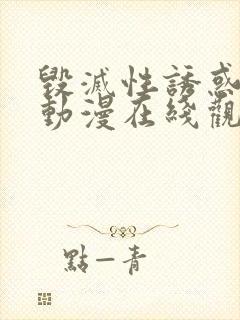 毀滅性誘惑
動漫在綫觀
點一青